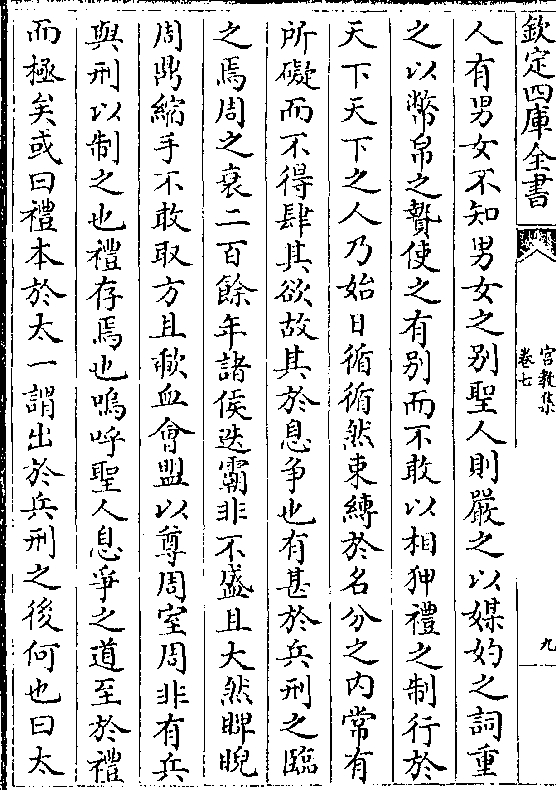 欽定四庫全書
宮教集
卷七
九
人有男女不知男女之別聖人則嚴之以媒妁之詞重
之以幣帛之贄使之有别而不敢以相狎禮之制行於
天下天下之人乃始日循循然束縛於名分之内常有
所礙而不得肆其欲故其於息爭也有甚於兵刑之臨
之焉周之衰二百餘年諸侯迭霸非不盛且大然睥睨
周鼎縮手不敢取方且歃血會盟以尊周室周非有兵
與刑以制之也禮存焉也嗚呼聖人息爭之道至於禮
而極矣或曰禮本於太一謂出於兵刑之後何也曰太